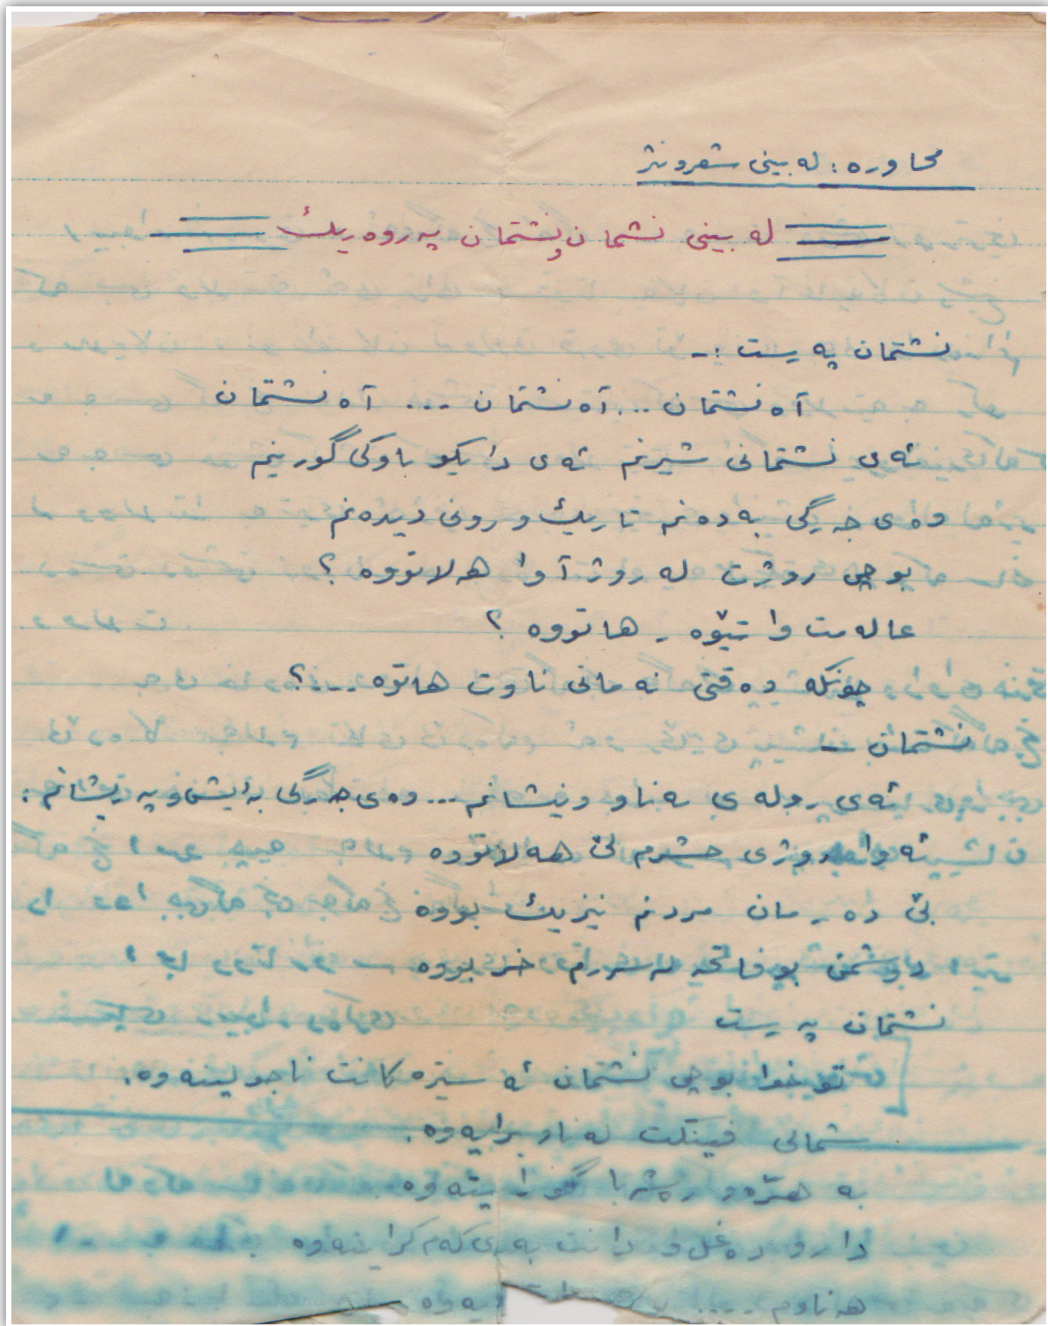 محاوره : له بینی شعرونثر
له بینی نشتمان ونشتمان په روه ریك
نشتمان په ریست :ـ
آه نشتمان ... آه نشتمان ... آه نشتمان
ئه ی نشتمانی شیرنم ئه ی دایکو باوکی گورینم
وه ی جه رگی به ده نم تاریك و رونی دیده نم
بوچی روژت له روژ آوا هه لاتووه ؟
عاله مت وا تێوه ر هاتووه ؟
چونکه ده قتی نه مانی ناوت هاتوه ....؟
نشتمان ـ
ئه ی روله ی به ناو ونیشانم ... وه ی جه رگی به ئیش وپه ریشانم :
ئه وا روژی حشرم لێ هه لاتووه
بێ ده رمان مردنم نیزیك بووه
دوشمن بوفاتحه له سه رم خر بووه
نشتمان په ریست
توخوا بوچی نشتمان ئه ستیره کانت ناجولینه وه .
شمالی فینکت له ناو برایه وه .
به ره شه با گورایته وه
دارو ده غل و دانت به که م کرا ینه وه
هه ناوم ....